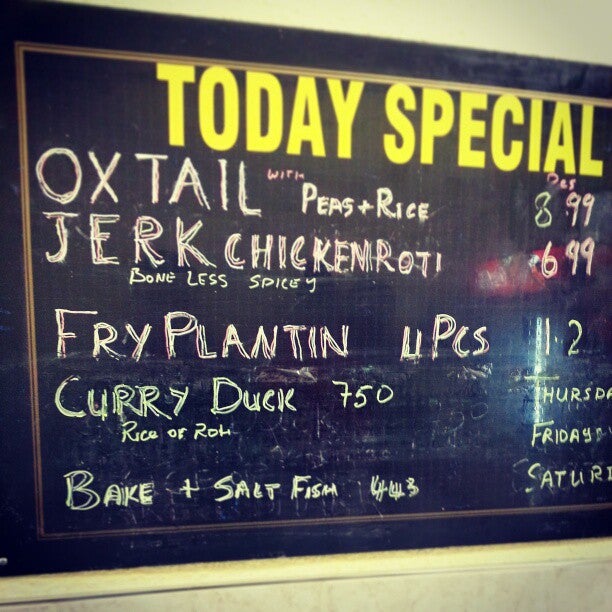 TODAY SPECIAL
OXTAIL WITH PEAS + RICE 8.99
JERK CHICKEN ROTI 6.99
BONE LESS SPICEY
FRY PLANTIN 4 PCS 1.2
CURRY DUCK 750 THURSDA
RICE OR ROTI FRIDAY
BAKE + SALT FISH 443 SATUR